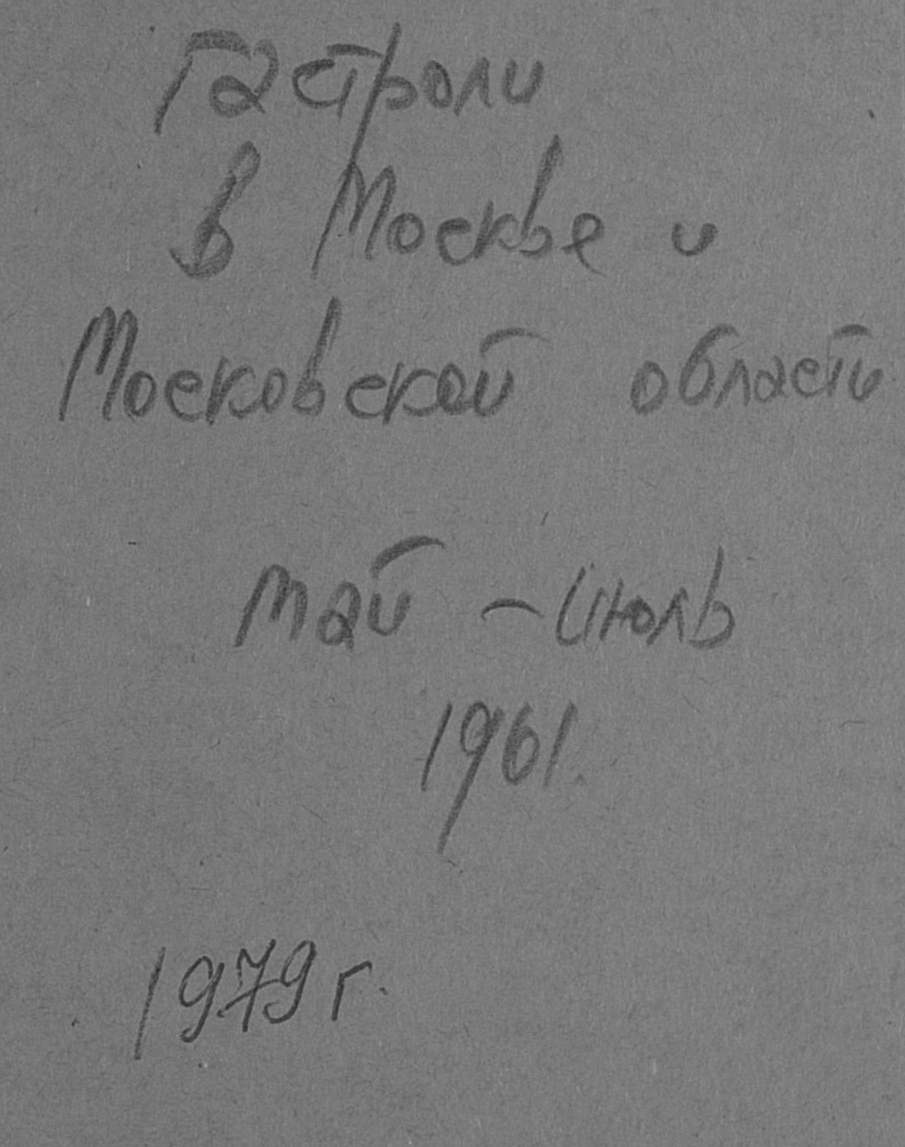 Гастроли
в Москве и
Московской области
май - июль
1961.
1979 г.